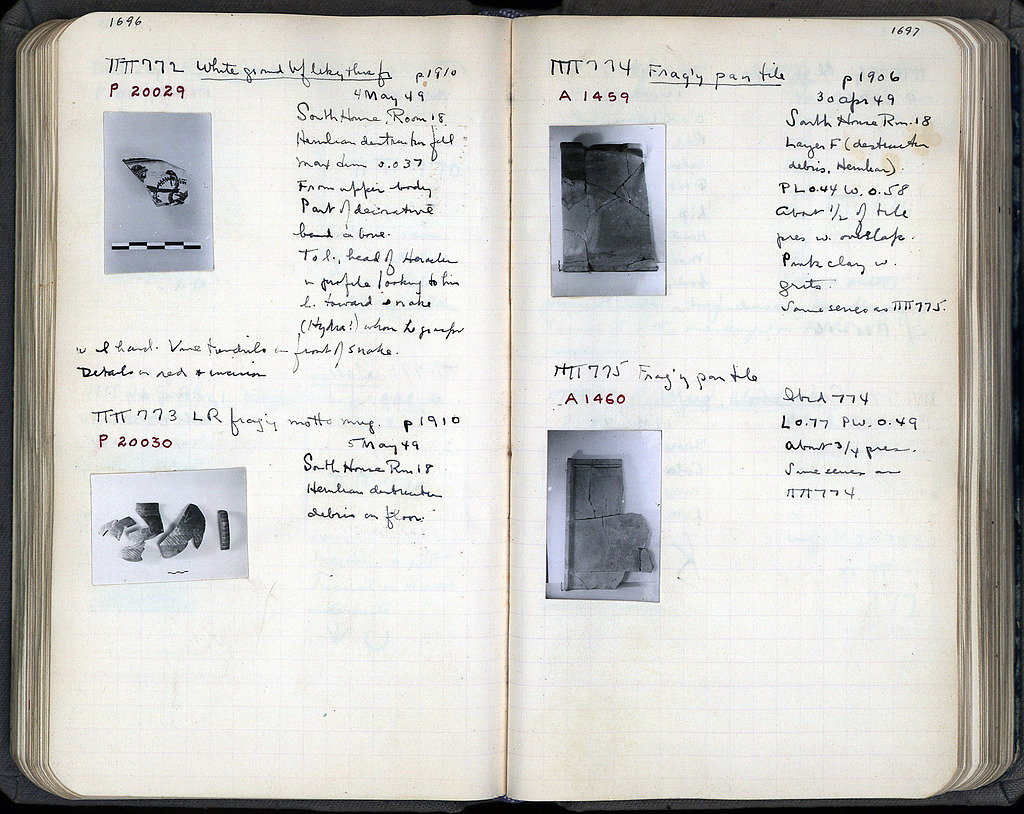 1696
ΠΠ 772 White ground bf lekythus fr p 1910
P 20029
4 May 49
South House, Room 18
Herulian destruction fill
max dim 0.037
From upper body
Part of decorative
band above.
To l., head of Heracles
in profile looking to his
l. toward snake
(Hydra?) whom he grasps
w l hand. Vine tendrils in front of snake.
Details in red + incision
ΠΠ 773 LR frag'y motto mug. p 1910
P 20030
5 May 49
South House Rm 18
Herulian destruction
debris on floor.
1697
ΠΠ 774 Frag'y pan tile p 1906
A 1459
30 Apr 49
South House Rm. 18
Layer F (destruction
debris, Herulian).
PL 0.44 W. 0.58
About 1/2 of tile
pres w. overlap.
Pink clay w.
grits.
Same series as ΠΠ 775.
ΠΠ 775 Frag'y pan tile
A 1460
Ibid 774
L 0.77 PW. 0.49
About 3/4 pres.
Same series as
ΠΠ 774